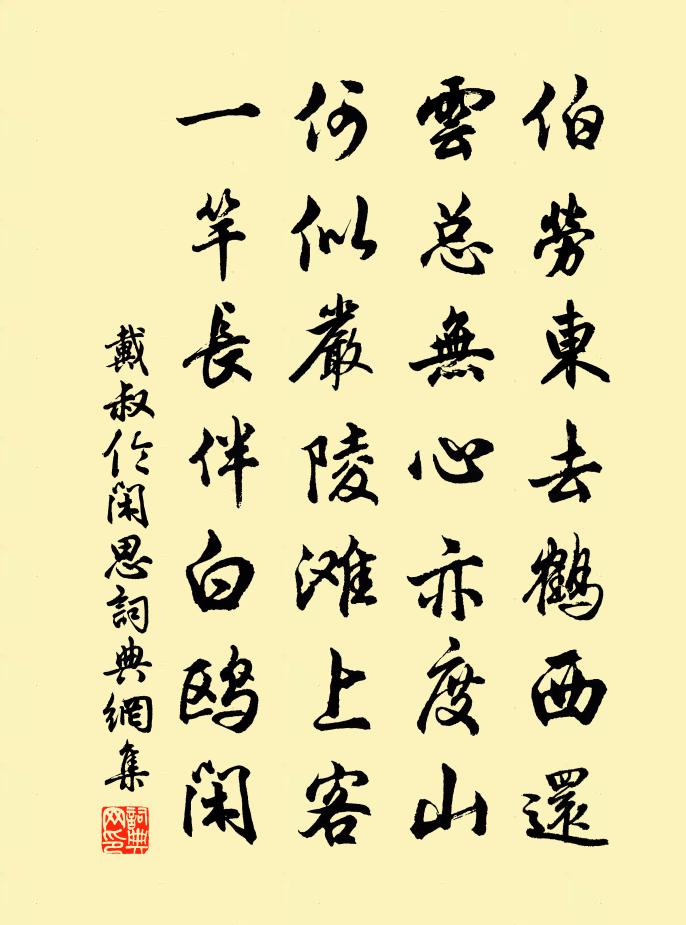 伯勞東去鶴西還
雲总無心亦度山
何似嚴陵滩上客
一竿長伴白鸥闲
戴叔伦闲思詞典網集
詞典网印